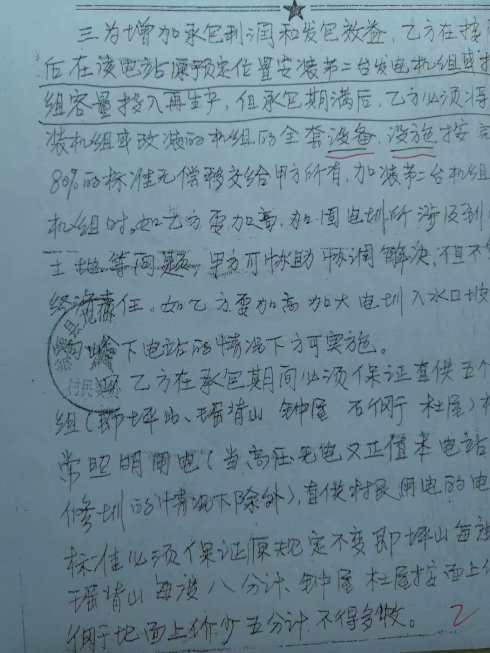 三为增加承包利润和发包效益,乙方在接
后在该电站原预定位置安装第二台发电机组或
组容量投入再生产,但承包期满后,乙方必须将
装机组或改装的机组的全套设备、设施按完
80%的标准无偿移交给甲方所有,加装第二台机组
机组时,如乙方要加高、加固电圳所涉及到
土地等问题,甲方可协助协调解决,但不
经济责任。如乙方要加高加大电圳入水口坡
下电站的情况下方可实施。
村民
乙方在承包期间必须保证直供五个
组(即坪山、瑶背山 钟屋 石
杜屋)
常照明用电(当高压无电又正值本电站
修圳的情况下除外),直供村民用电的电
标准必须保证原规定不变即坪山每
瑶背山每度八分计、钟屋 杜屋按面上
地面上价少五分计不得多收。
2